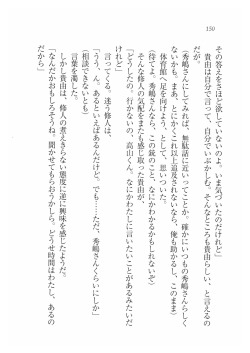 150
その答えをさほど欲していないのよ。いま気づいたのだけれど」
貴由は自分で言って、自分でいぶかしむ。そんなところも貴由らしい、と言えるの
だが。
(秀嶋さんにしてみれば、無駄話に近いってことか。確かにいつもの秀嶋さんらしく
ないかも。まあ、とにかくこれ以上追及されないなら、俺も助かるし、このまま)
体育館へ足を向けよう、として、思いついた。
(待てよ。秀嶋さんなら、この銃のこと、なにかわかるかもしれないぞ)
そんな修人の気配をまたも感じ取った貴由が、
「どうしたの。行かないの、高山くん。なにかわたしに言いたいことがあるみたいだ
けれど」
言ってくる。迷う修人は、
「うう、ん、あるといえばあるんだけど、でも……ただ、秀嶋さんくらいにしか」
(相談できないとも)
言葉を濁した。
しかし貴由は、修人の煮えきらない態度に逆に興味を感じたようだ。
「なんだかおもしろそうね。聞かせてもらおうかしら。どうせ時間はわたし、あるの
だから」